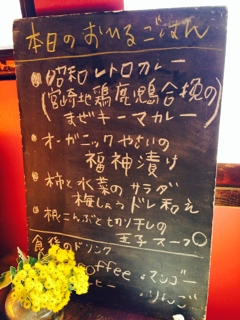 本日のおひるごはん
昭和レトロカレー
(宮崎地鶏鹿児島合挽の
まぜキーマカレー
・オーガニックやさいの
福神漬け
・柿と水菜のサラダ
梅しょうドレ和え
・根こんぶと切り干しの
玉子スープ
食後のドリンク
coffee ・マンゴー
コーヒー ・りんご